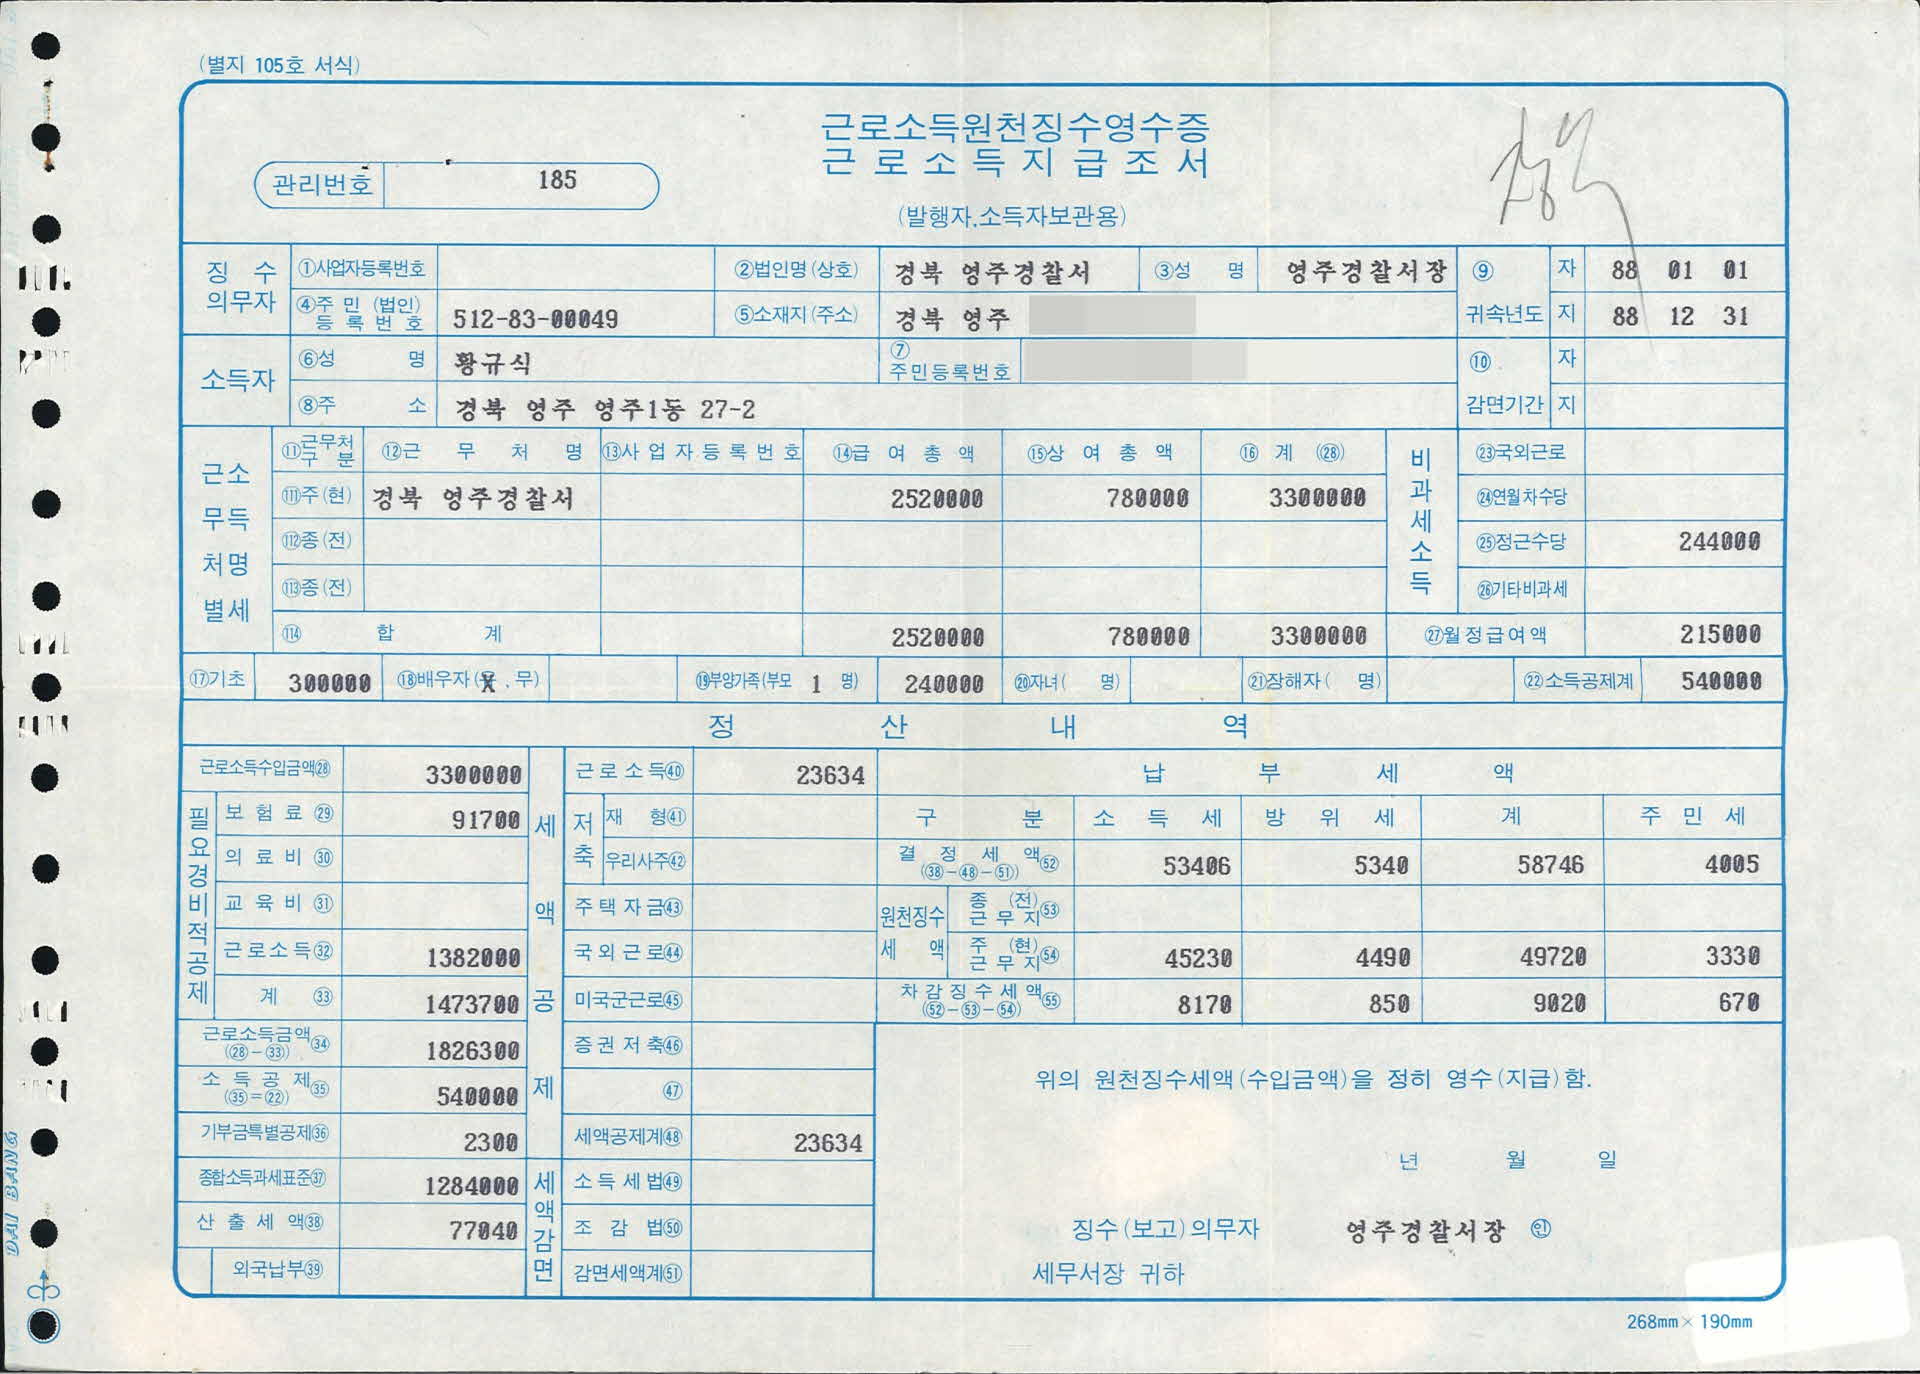 (별지 105호 서식)
근로소득원천징수영수증
근로소득지급조서
관리번호 185
(발행자.소득자보관용)
징수 의무자 ①사업자등록번호 ②법인명(상호) 경북 영주경찰서 ③성 명 영주경찰서장 ⑨ 귀속년도 자 88 01 01
④주민(법인)등록번호 512-83-00049 ⑤소재지(주소) 경북 영주 지 88 12 31
소득자 ⑥성 명 황규식 ⑦주민등록번호 ⑩ 감면기간 자
⑧주 소 경북 영주 영주1동 27-2 지
근소무득처명별세 ⑪근무처구분 ⑫근무처명 ⑬사업자등록번호 ⑭급여총액 ⑮상여총액 ⑯ 계 (28) 비과세소득 ㉓국외근로
⑪주(현) 경북 영주경찰서 2520000 780000 3300000 ㉔연월차수당
⑫종(전) ㉕정근수당 244000
⑬종(전) ㉖기타비과세
⑭ 합 계 2520000 780000 3300000 ㉗월정급여액 215000
⑰기초 300000 ⑱배우자(X.무) ⑲부양가족(부모 1 명) 240000 ⑳자녀( 명) ㉑장해자( 명) ㉒소득공제계 540000
정 산 내 역
근로소득수입금액㉘ 3300000 세액공제 근로소득㊵ 23634 납 부 세 액
필요경비적공제 보험료㉙ 91700 저축 재 형㊶ 구 분 소 득 세 방 위 세 계 주 민 세
의료비㉚ 우리사주㊷ 결정세액(㊳-㊽-(51))(52) 53406 5340 58746 4005
교육비㉛ 주택자금㊸ 원천징수세액 종(전)근무지(53)
근로소득㉜ 1382000 국외근로㊹ 주(현)근무지(54) 45230 4490 49720 3330
계 ㉝ 1473700 미국군근로㊺ 차감징수세액((52)-(53)-(54))(55) 8170 850 9020 670
근로소득금액(㉘-㉝)㉞ 1826300 증권저축㊻
소득공제(㉟=㉒)㉟ 540000 ㊼
위의 원천징수세액(수입금액)을 정히 영수(지급)함.
기부금특별공제㊱ 2300 세액공제계㊽ 23634
년 월 일
종합소득과세표준㊲ 1284000 세액감면 소득세법㊾
산출세액㊳ 77040 조감법㊿
징수(보고)의무자 영주경찰서장 ㊞
외국납부㊴ 감면세액계(51)
세무서장 귀하
268mm×190mm
DAI BANG